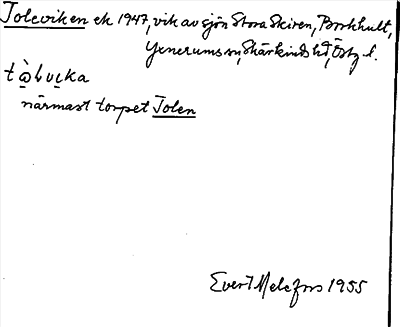 Joleviken ek 1947, vik av sjön Stora Skiren, Borkhult,
Yxnerums sn, Skärkinds hd, Östg. l.
närmast torpet Jolen
Evert Melefors 1955